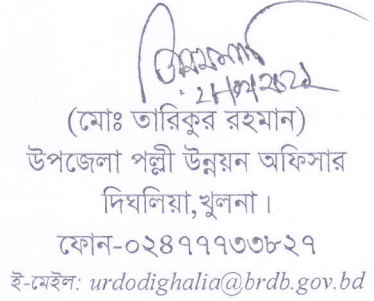 (মোঃ তারিকুর রহমান)
উপজেলা পল্লী উন্নয়ন অফিসার
দিঘলিয়া,খুলনা ।
ফোন-০২৪৭৭৭৩৩৮২৭
ই-মেইল: urdodighalia@brdb.gov.bd